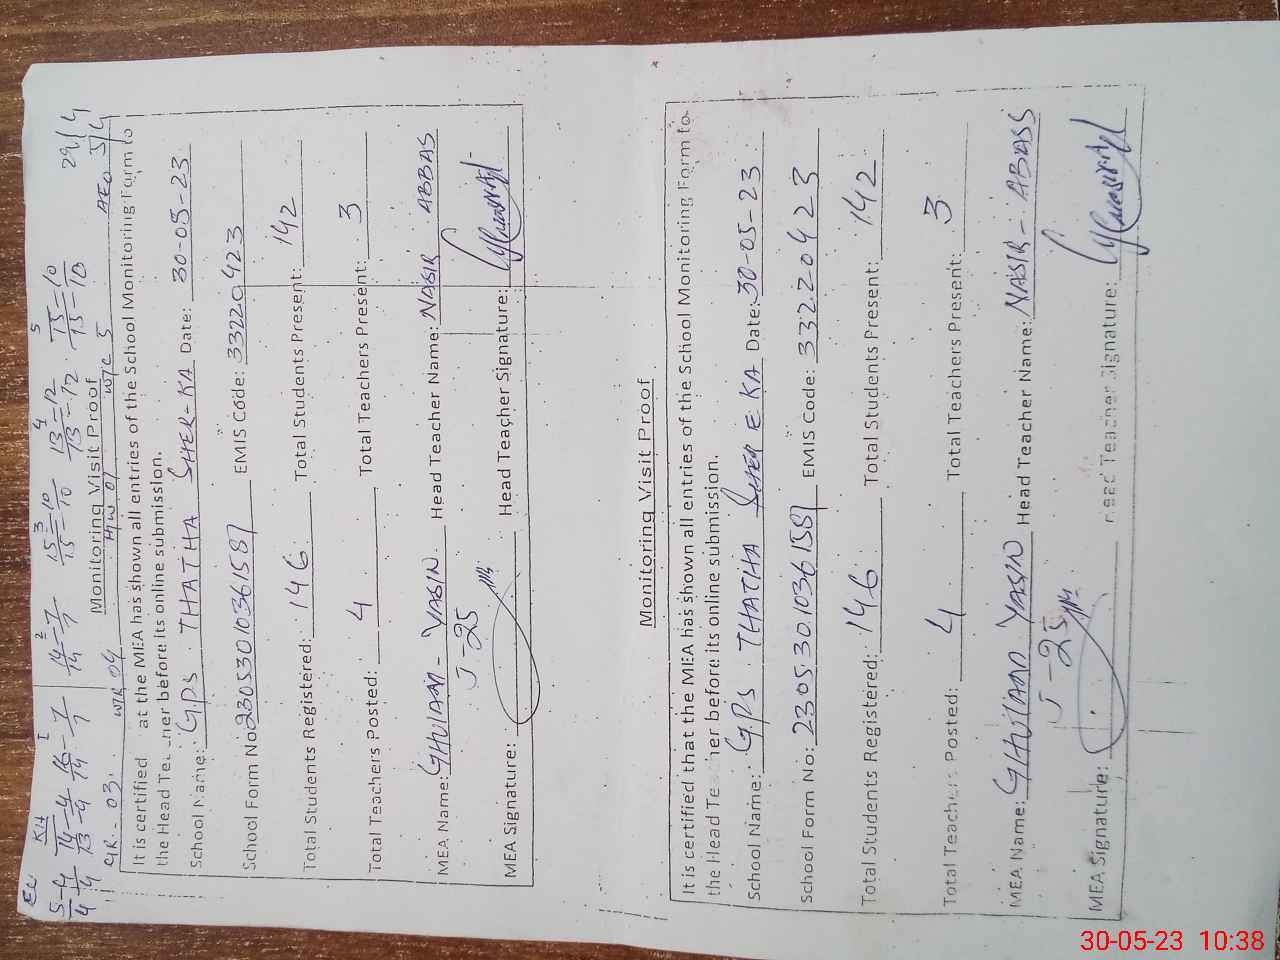 ECE KH 1 2 3 4 5 29/4
5-4 14-4 16-7 14-7 15=10 13=12 15=10
4 4 13-4 14-7 14 7 15-10 13-12 15=10
GR. 03. WTR 04 HW 07 W/C 5 AEO 5/4
Monitoring Visit Proof
It is certified at the MEA has shown all entries of the School Monitoring Form to
the Head Teacher before its online submission.
School Name: G.P.S THATHA SHER-KA Date: 30-05-23
School Form No 2305301036 1587 EMIS Code: 33220423
Total Students Registered: 146 Total Students Present: 142
Total Teachers Posted: 4 Total Teachers Present: 3
MEA Name: GHULAM - YASIN Head Teacher Name: NASIR ABBAS
J-25
MEA Signature: Head Teacher Signature:
Monitoring Visit Proof
It is certified that the MEA has shown all entries of the School Monitoring Form to
the Head Teacher before its online submission.
School Name: G.P.S THATHA SHER E KA Date: 30-05-23
School Form No: 2305301036 1587 EMIS Code: 33220423
Total Students Registered: 146 Total Students Present: 142
Total Teachers Posted: 4 Total Teachers Present: 3
MEA Name: GHULAM YASIN Head Teacher Name: NASIR - ABBASS
J-25
MEA Signature: Head Teacher Signature:
30-05-23 10:38